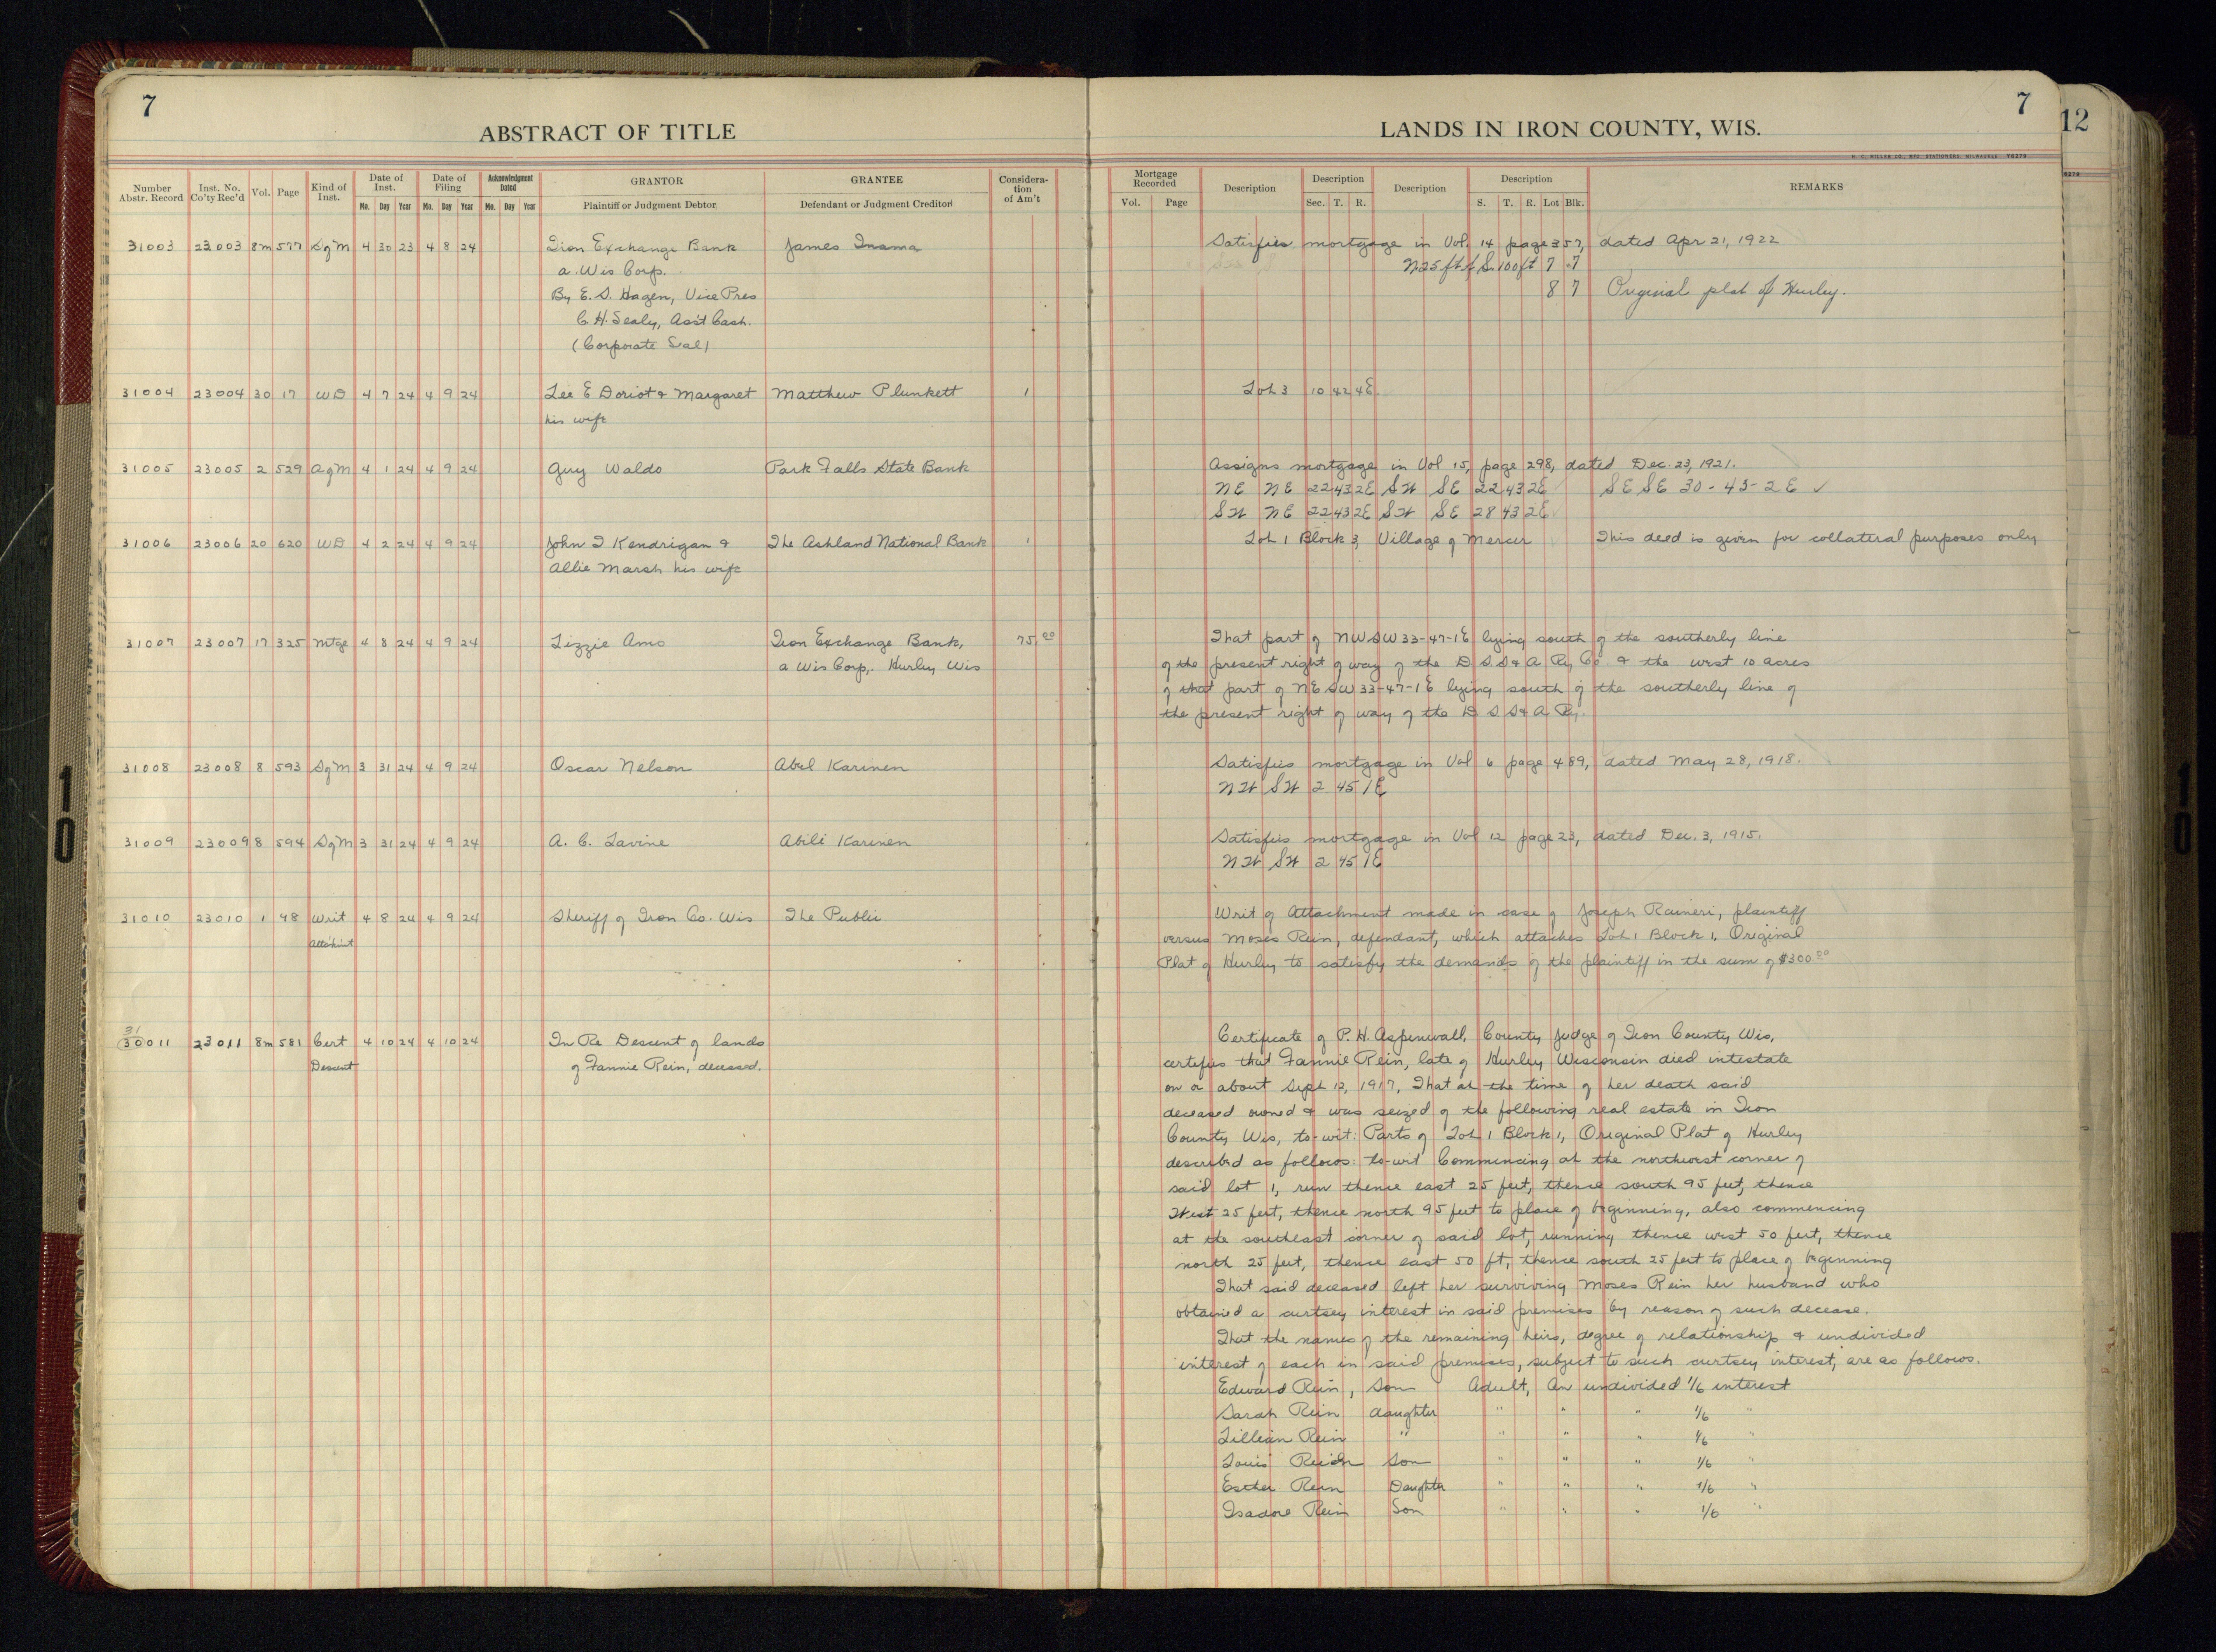 7
ABSTRACT OF TITLE
Number Abstr. Record
Inst. No. Co'ty Rec'd
Vol.
Page
Kind of Inst.
Date of Inst.
Mo. Day Year
Date of Filing
Mo. Day Year
Acknowledgment Dated
Mo. Day Year
GRANTOR
Plaintiff or Judgment Debtor
GRANTEE
Defendant or Judgment Creditor
Considera-
tion
of Am't
31003 23003 8m 577 SgM 4 30 23 4 8 24 Iron Exchange Bank James Inama
a. Wis Corp.
By E. S. Hagen, Vice Pres
C. H. Sealy, Ass't Cash.
(Corporate Seal)
31004 23004 30 17 WD 4 7 24 4 9 24 Lee E Doriot & Margaret Matthew Plunkett 1
his wife
31005 23005 2 529 AgM 4 1 24 4 9 24 Guy Waldo Park Falls State Bank
31006 23006 20 620 WD 4 2 24 4 9 24 John I Kendrigan & The Ashland National Bank 1
Allie Marsh his wife
31007 23007 17 325 Mtge 4 8 24 4 9 24 Lizzie Amo Iron Exchange Bank, 75.00
a Wis Corp,. Hurley Wis
31008 23008 8 593 SgM 3 31 24 4 9 24 Oscar Nelson Abel Karinen
31009 23009 8 594 SgM 3 31 24 4 9 24 A. C. Lavine Abili Karinen
31010 23010 1 48 Writ 4 8 24 4 9 24 Sheriff of Iron Co. Wis The Public
31
30011 23011 8m 581 Cert 4 10 24 4 10 24 In Re Descent of lands
Descent of Fannie Rein, deceased.
7
LANDS IN IRON COUNTY, WIS.
H. C. MILLER CO., MFG. STATIONERS, MILWAUKEE Y6279
Mortgage Recorded
Vol. Page
Description
Description
Sec. T. R.
Description
Description
S. T. R. Lot Blk.
REMARKS
Satisfies mortgage in Vol. 14 page 357, dated Apr 21, 1922
N 25 ft of S. 100 ft 7 7
8 7 Original plat of Hurley.
Lot 3 10 42 4E
Assigns mortgage in Vol 15, page 298, dated Dec. 23, 1921.
NE NE 22 43 2E SW SE 22 43 2E SE SE 30-43-2E ✓
SW NE 22 43 2E SW SE 28 43 2E
Lot 1 Block 3, Village of Mercer This deed is given for collateral purposes only
That part of NW SW 33-47-1E lying south of the southerly line
of the present right of way of the D S S & A Ry Co. & the west 10 acres
of that part of NE SW 33-47-1E lying south of the southerly line of
the present right of way of the D S S & A Ry.
Satisfies mortgage in Vol 6 page 489, dated May 28, 1918.
NW SW 2 45 1E
Satisfies mortgage in Vol 12 page 23, dated Dec. 3, 1915.
NW SW 2 45 1E
Writ of Attachment made in case of Joseph Raineri, plaintiff
versus Moses Rein, defendant, which attaches Lot 1 Block 1, Original
Plat of Hurley to satisfy the demands of the plaintiff in the sum of $300.00
Certificate of P. H. Aspinwall, County Judge of Iron County Wis,
certifies that Fannie Rein, late of Hurley Wisconsin died intestate
on or about Sept 12, 1917, That at the time of her death said
deceased owned & was seized of the following real estate in Iron
County Wis, to-wit: Parts of Lot 1 Block 1, Original Plat of Hurley
described as follows: to-wit Commencing at the northwest corner of
said lot 1, run thence east 25 feet, thence south 95 feet, thence
West 25 feet, thence north 95 feet to place of beginning, also commencing
at the southeast corner of said lot, running thence west 50 feet, thence
north 25 feet, thence east 50 ft, thence south 25 feet to place of beginning
That said deceased left her surviving Moses Rein her husband who
obtained a curtsey interest in said premises by reason of such decease.
That the names of the remaining heirs, degree of relationship & undivided
interest of each in said premises, subject to such curtsey interest, are as follows.
Edward Rein, Son Adult, An undivided 1/6 interest
Sarah Rein daughter " " " 1/6 "
Lillian Rein " " " " 1/6 "
Louis Son " " " 1/6 "
Esther Rein Daughter " " " 1/6 "
Isadore Rein Son " " " 1/6 "
12
6279
10
10